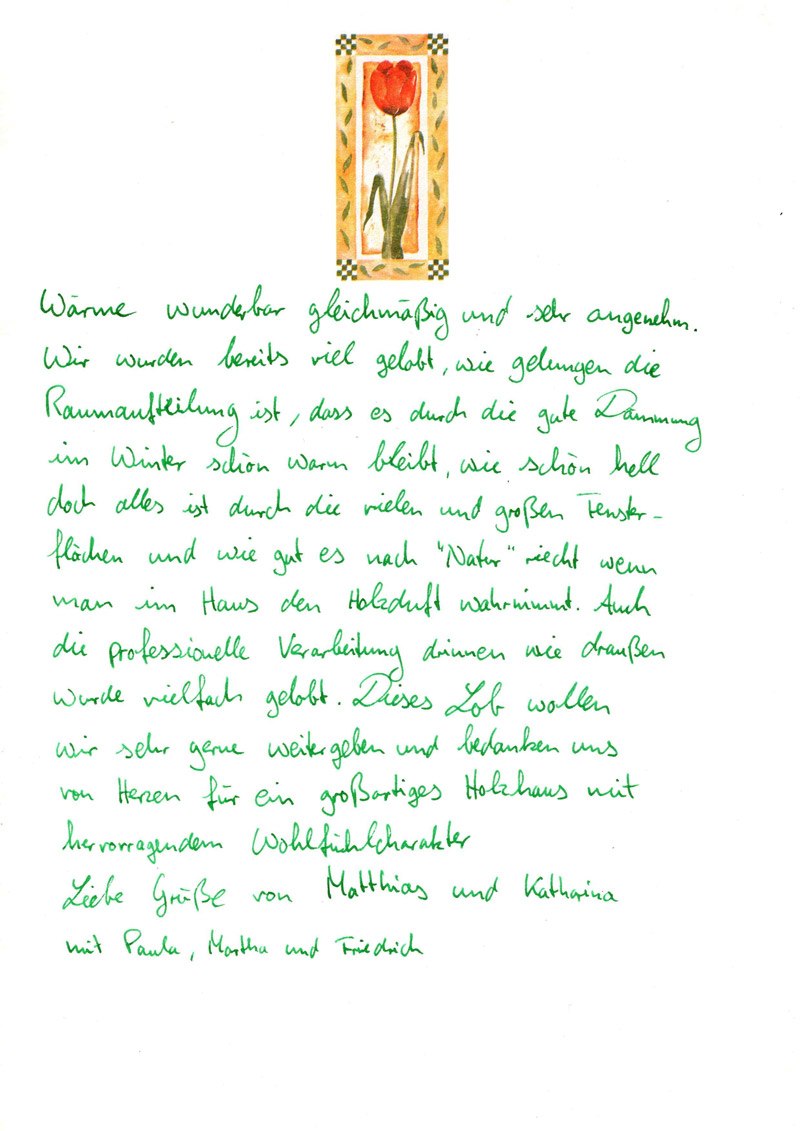 Wärme wunderbar gleichmäßig und sehr angenehm.
Wir wurden bereits viel gelobt, wie gelungen die
Raumaufteilung ist, dass es durch die gute Dämmung
im Winter schön warm bleibt, wie schön hell
doch alles ist durch die vielen und großen Fenster-
flächen und wie gut es nach "Natur" riecht wenn
man im Haus den Holzduft wahrnimmt. Auch
die professionelle Verarbeitung drinnen wie draußen
wurde vielfach gelobt. Dieses Lob wollen
wir sehr gerne weitergeben und bedanken uns
von Herzen für ein großartiges Holzhaus mit
hervorragendem Wohlfühlcharakter
Liebe Grüße von Matthias und Katharina
mit Paula, Martha und Friedrich